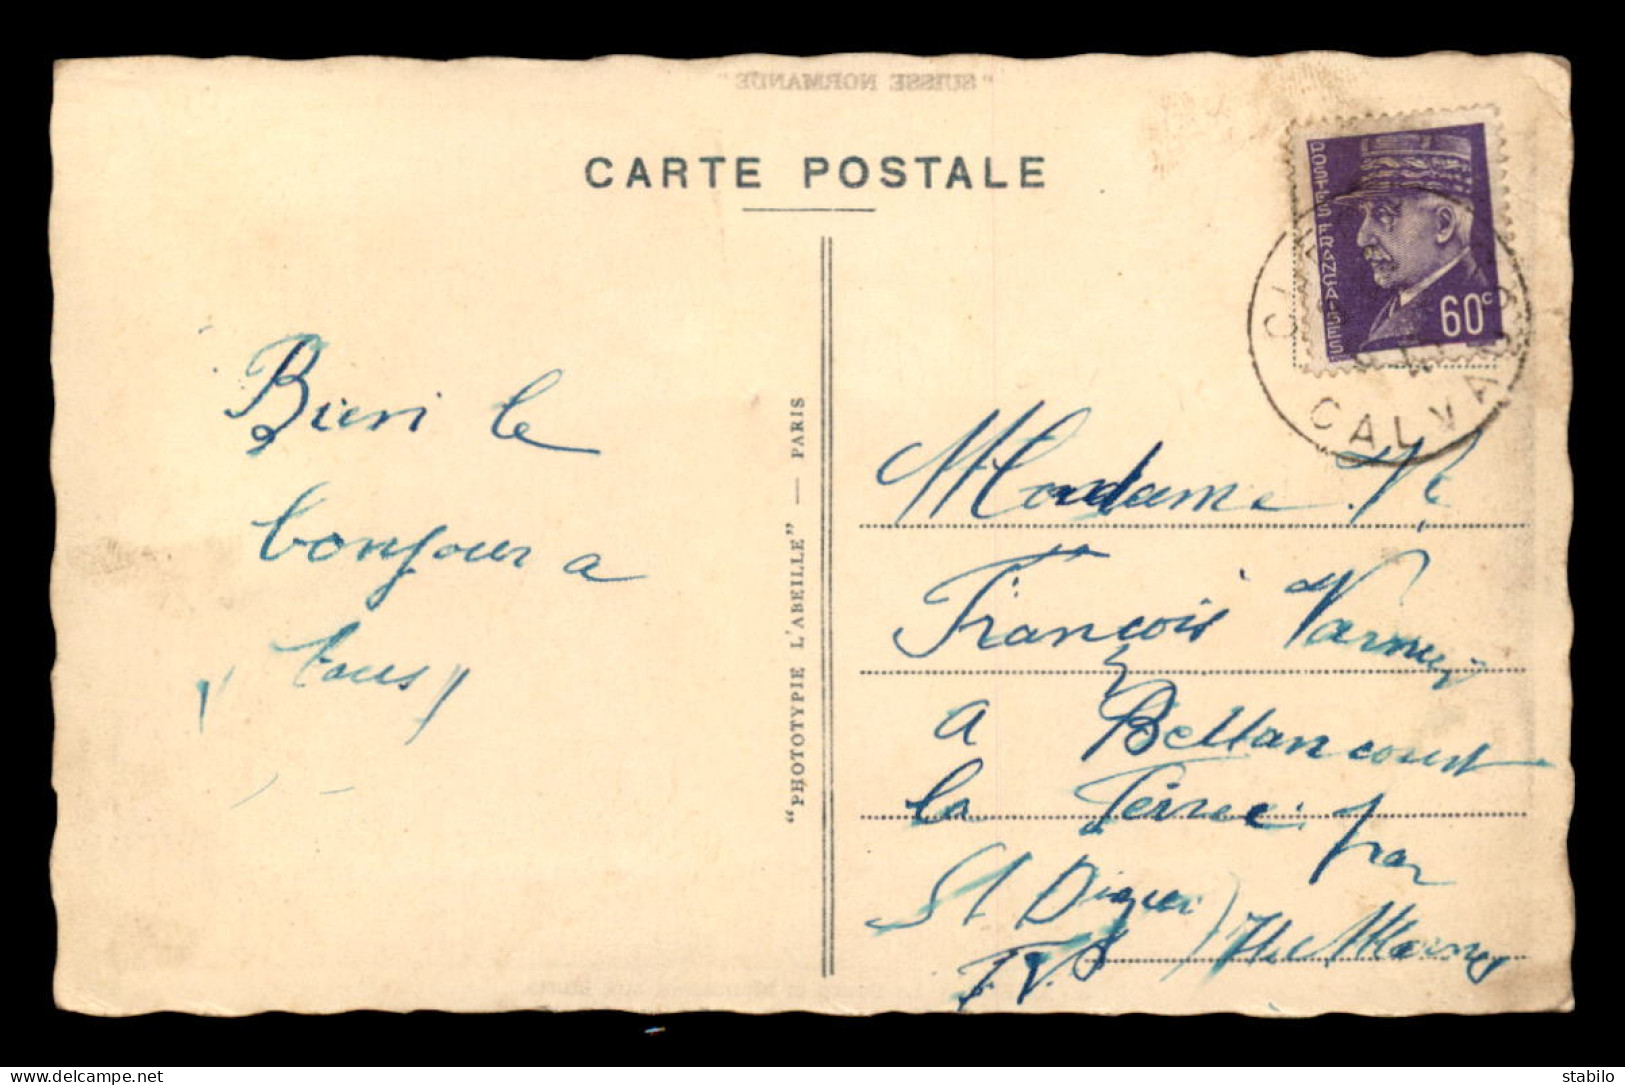 "SUISSE NORMANDE"
CARTE POSTALE
POSTES FRANÇAISES
60c
CALVA
Bien le
bonjour a
tous
"PHOTOTYPIE L'ABEILLE" — PARIS
Madame
François
a Bettancourt
la Ferree par
St Dizier
Hte Marne